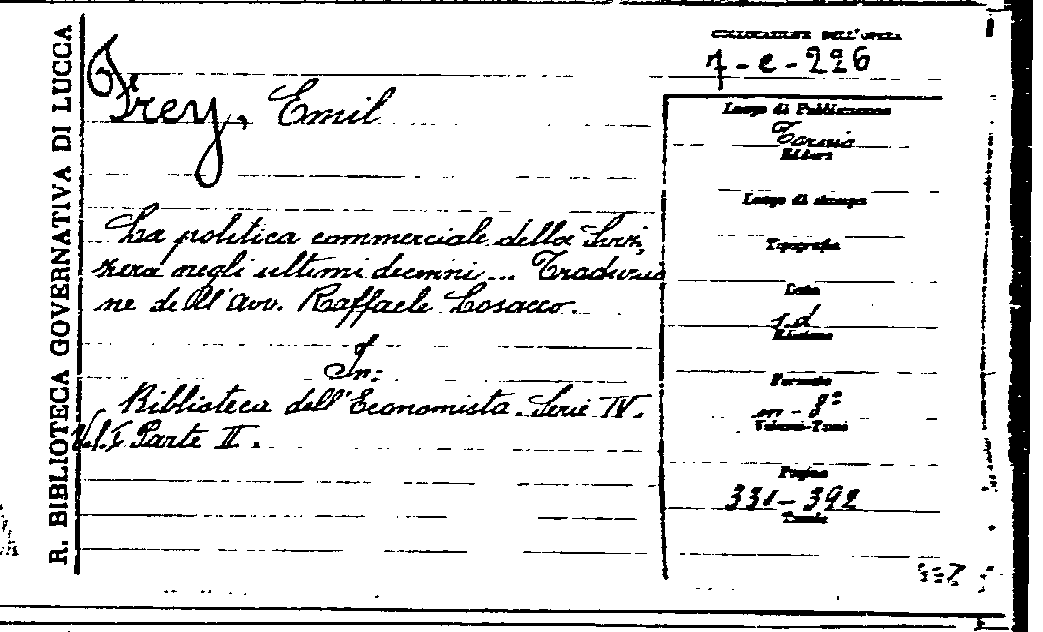 R. BIBLIOTECA GOVERNATIVA DI LUCCA
COLLOCAZIONE DELL'OPERA
7-e-226
Frey, Emil
La politica commerciale della Sviz,
zera negli ultimi decenni... Traduzio
ne dell'avv. Raffaele Cosacco.
In:
Biblioteca dell'Economista. Serie IV.
V.I Parte II.
Luogo di Pubblicazione
Torino
Editori
Luogo di stampa
Tipografia
Data
s.d
Edizione
Formato
in-8º
Volumi-Tomi
Pagine
331-392
Tavole